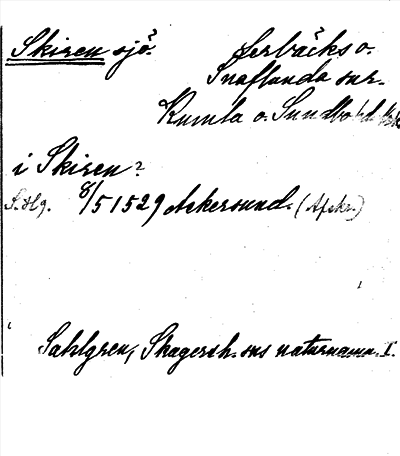 Skiren sjö.
Lerbäcks o.
Snaflunda snr.
Kumla o. Sundbo hd
i Skiren?
8/5 1529 Askersund. (Afskr.)
Sahlgren, Skagersh. sns naturnamn. I.